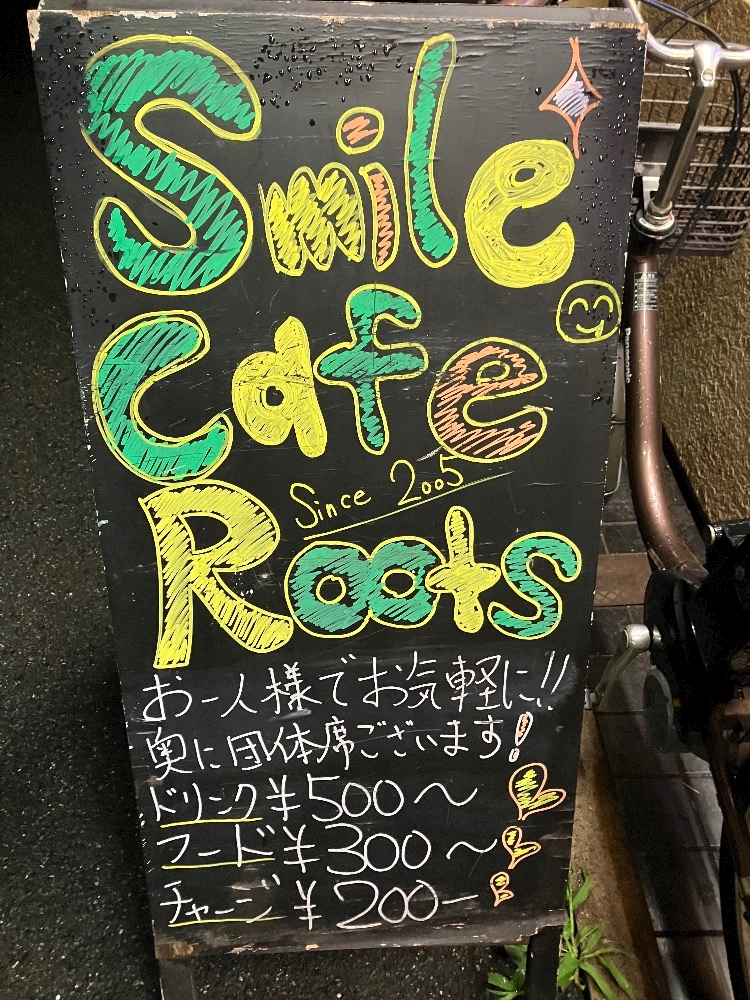 Smile
Cafe
Since 2005
Roots
お一人様でお気軽に!!
奥に団体席ございます!
ドリンク¥500〜
フード¥300〜
チャージ¥200ー
Panasonic